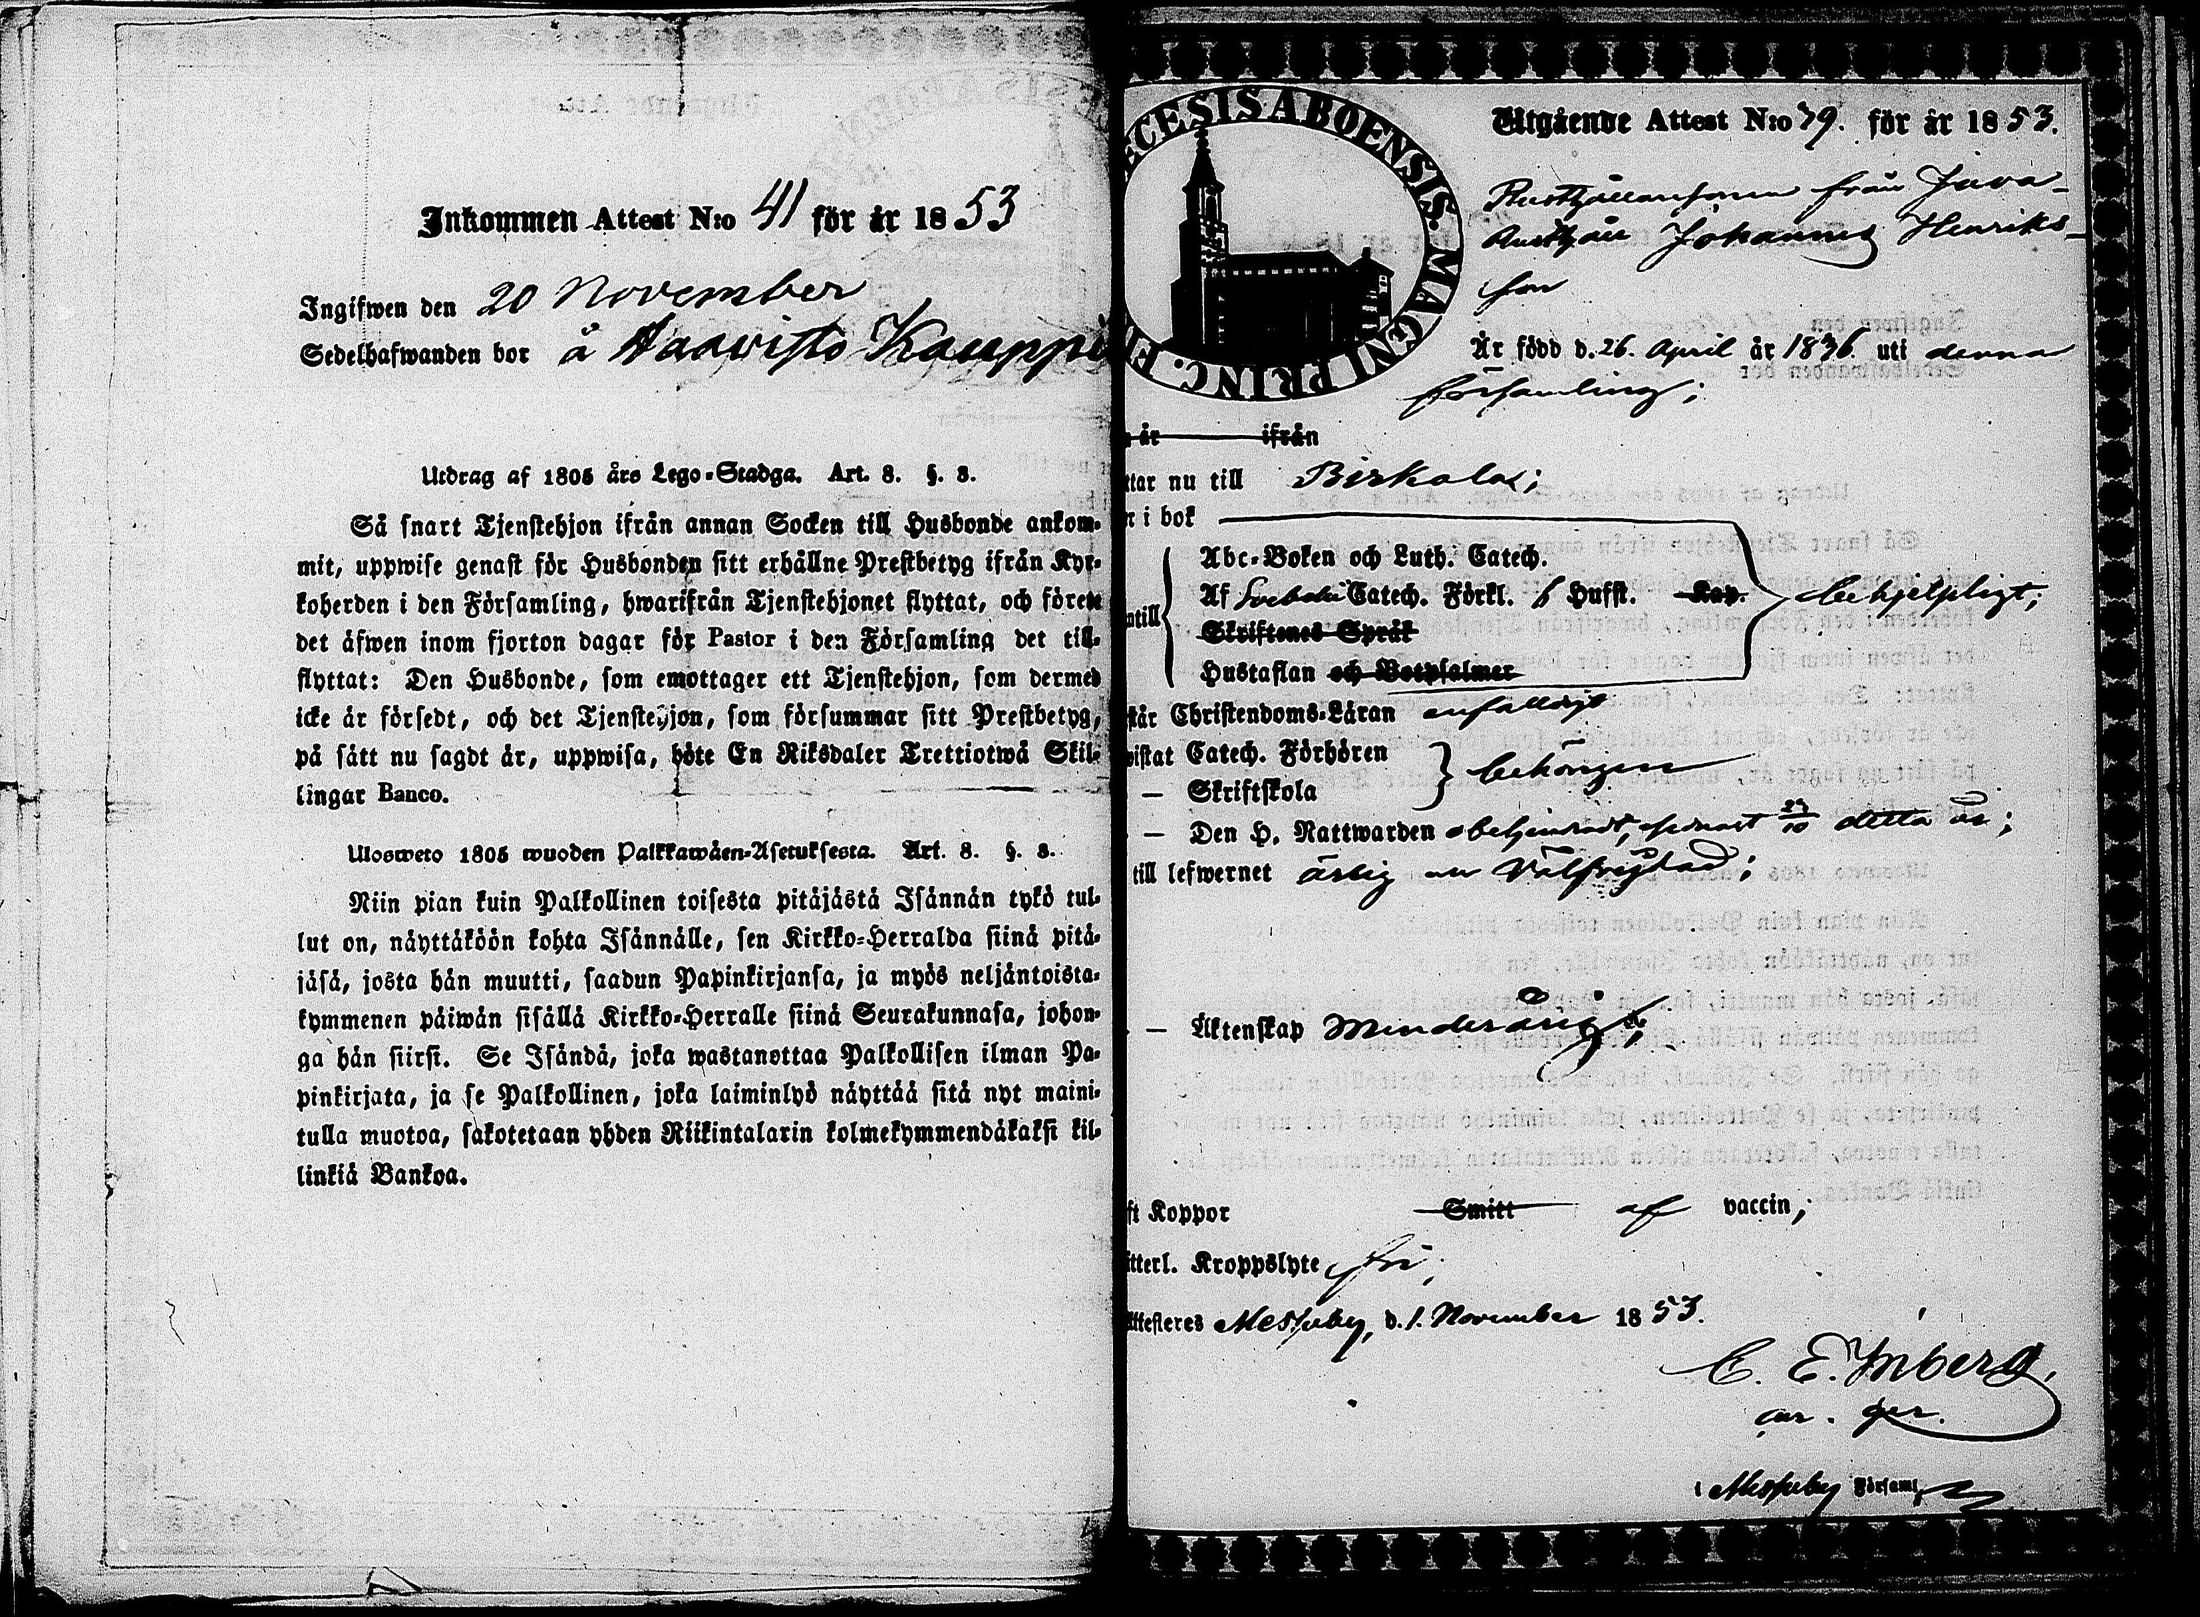 Inkommen Attest N:o 41 för år 1853
Ingifwen den 20 November
Sedelhafwanden bor å Haavisto Kauppi
Utdrag af 1805 års Lego-Stadga. Art. 8. §. 8.
Så snart Tjenstehjon ifrån annan Socken till Husbonde ankom-
mit, uppwise genast för Husbonden sitt erhållne Prestbetyg ifrån Kyr-
koherden i den Församling, hwarifrån Tjenstehjonet flyttat, och förete
det äfwen inom fjorton dagar för Pastor i den Församling det till-
flyttat: Den Husbonde, som emottager ett Tjenstehjon, som dermed
icke är försedt, och det Tjenstehjon, som försummar sitt Prestbetyg,
på sätt nu sagdt är, uppwisa, böte En Riksdaler Trettiotwå Skil-
lingar Banco.
Ulosweto 1805 wuoden Palkkawäen-Asetuksesta. Art. 8. §. 8.
Niin pian kuin Palkollinen toisesta pitäjästä Isännän tykö tul-
lut on, näyttäköön kohta Isännälle, sen Kirkko-Herralda siinä pitä-
jäsä, josta hän muutti, saadun Papinkirjansa, ja myös neljäntoista-
kymmenen päiwän sisällä Kirkko-Herralle siinä Seurakunnasa, johon-
ga hän siirsi. Se Isändä, joka wastanottaa Palkollisen ilman Pa-
pinkirjata, ja se Palkollinen, joka laiminlyö näyttää sitä nyt maini-
tulla muotoa, sakotetaan yhden Riikintalarin kolmekymmendäkaksi kil-
linkiä Bankoa.
ECESIS ABOENSIS. MAGNI PRINC. F
Utgående Attest N:o 79. för år 1853.
Rusthållaresonen från Java-
Rusthåll Johannes Henriks-
son
Är född d. 26. April år 1836. uti denna
församling;
år ifrån
ttar nu till Birkala;
r i bok
Abc-Boken och Luth. Catech.
Af Svebelii Catech. Förkl. 6 Hufst. Kap. behjelpligt;
ntill
Skriftenes Språk
Hustaflan och Botpsalmer
står Christendoms-Läran enfalldigt
wistat Catech. Förhören
— Skriftskola behörigen
— Den H. Nattwarden obehindradt, senast 23/10 detta år;
till lefwernet ärlig och välfrejdad;
— Äktenskap Minderårig;
ft Koppor Smitt af vaccin;
itterl. Kroppslyte fri;
Attesteres Messuby, d. 1. November 1853.
C. E. Inberg,
i Messuby Församl.